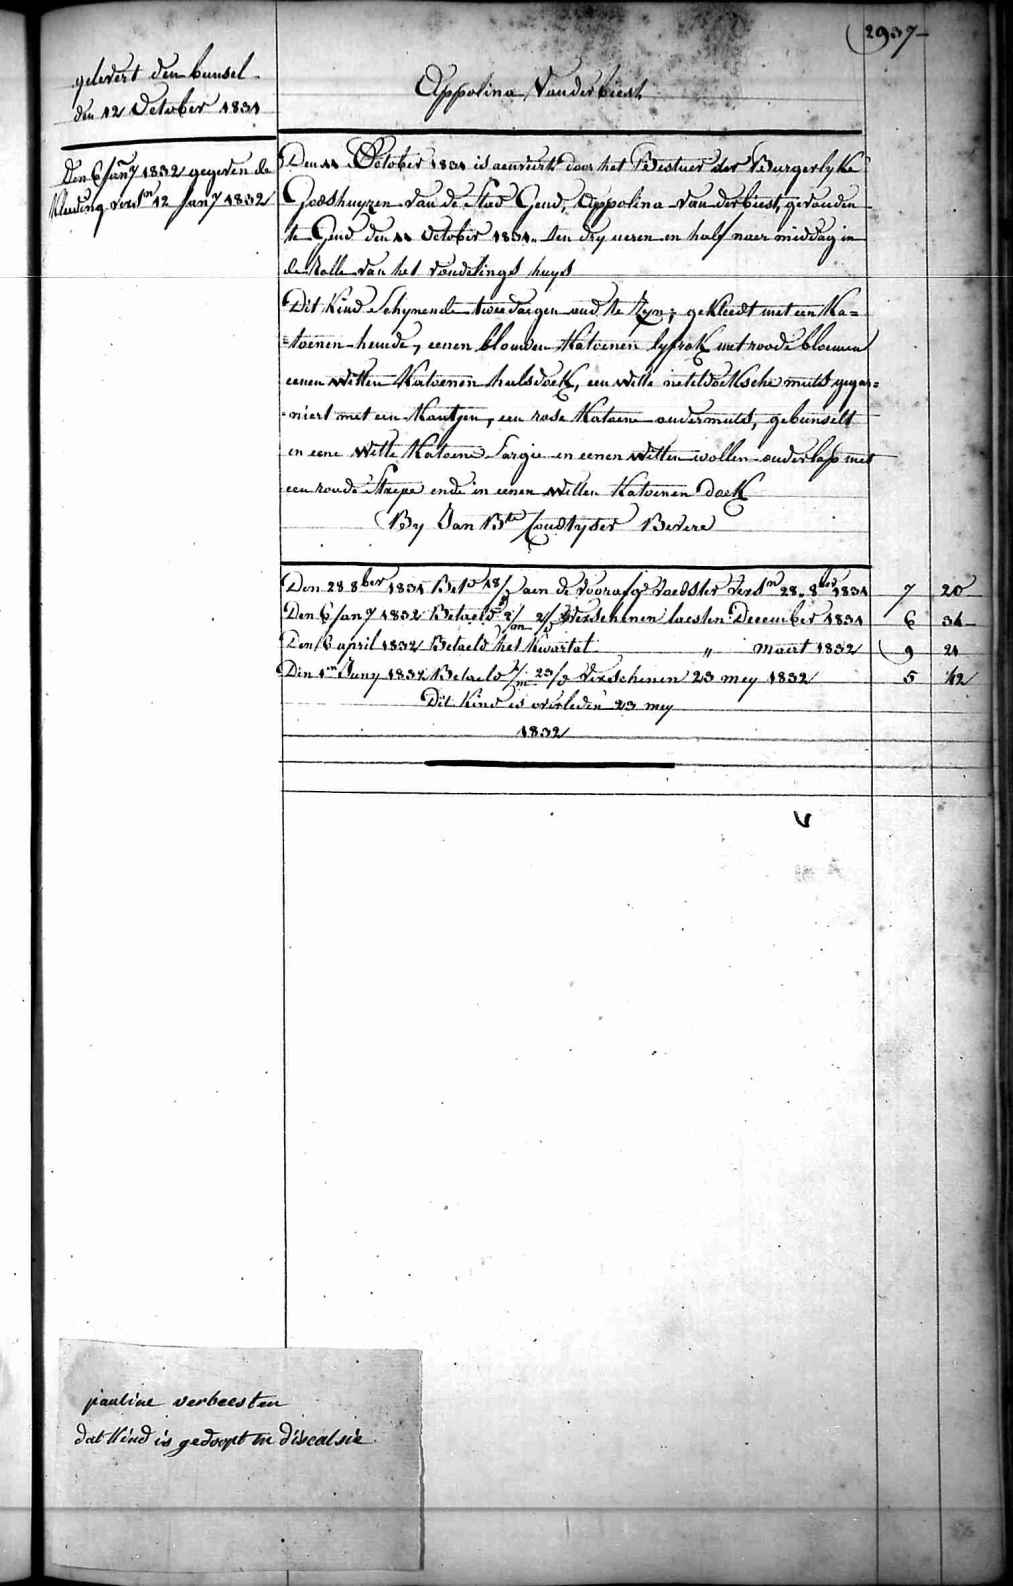 2937
gelevert den bunsel
den 12 October 1831
Appolina Vanderbiest
Den 6 Jany 1832 gegeven de
kleeding versn 12 Jany 1832
Den 11 October 1831 is aenveert door het Bestuer der Burgerlyke
Godshuyzen van de Stad Gend, Appolina Vanderbiest, gevonden
te Gend den 11 October 1831 ten dry ueren en half naer middag in
de Rolle van het vondelings huys
Dit kind schynende twee daegen oud te zyn; gekleedt met een Ka=
=toenen hemde, eenen blouwen Katoenen lyfrok met roode bloemen
eenen witten Katoenen halsdoek, een witte neteldoeksche muts gegar=
=niert met een Kantjen, een rose Katoene ondermuts, gebunselt
in eene witte Katoene Sargie en eenen witten wollen onderlap met
een roode Strepe ende in eenen witten Katoenen doek
By Jan Bte Coustyser Bevere
Den 28 8ber 1831 Bet 18/ aen de voorafge voedster vers.n 28. 8ber 1831 7 20
Den 6 Jany 1832 Betaeld 2/m 2/ verschenen laesten December 1831 6 34
Den 6 april 1832 Betaeld het kwartal " maert 1832 9 21
Den 1en Juny 1832 Betaeld 1/m 23/ verschenen 23 mey 1832 5 42
Dit Kind is overleden 23 mey
1832
pauline verbeesten
dat Kind is gedoopt in discalsie